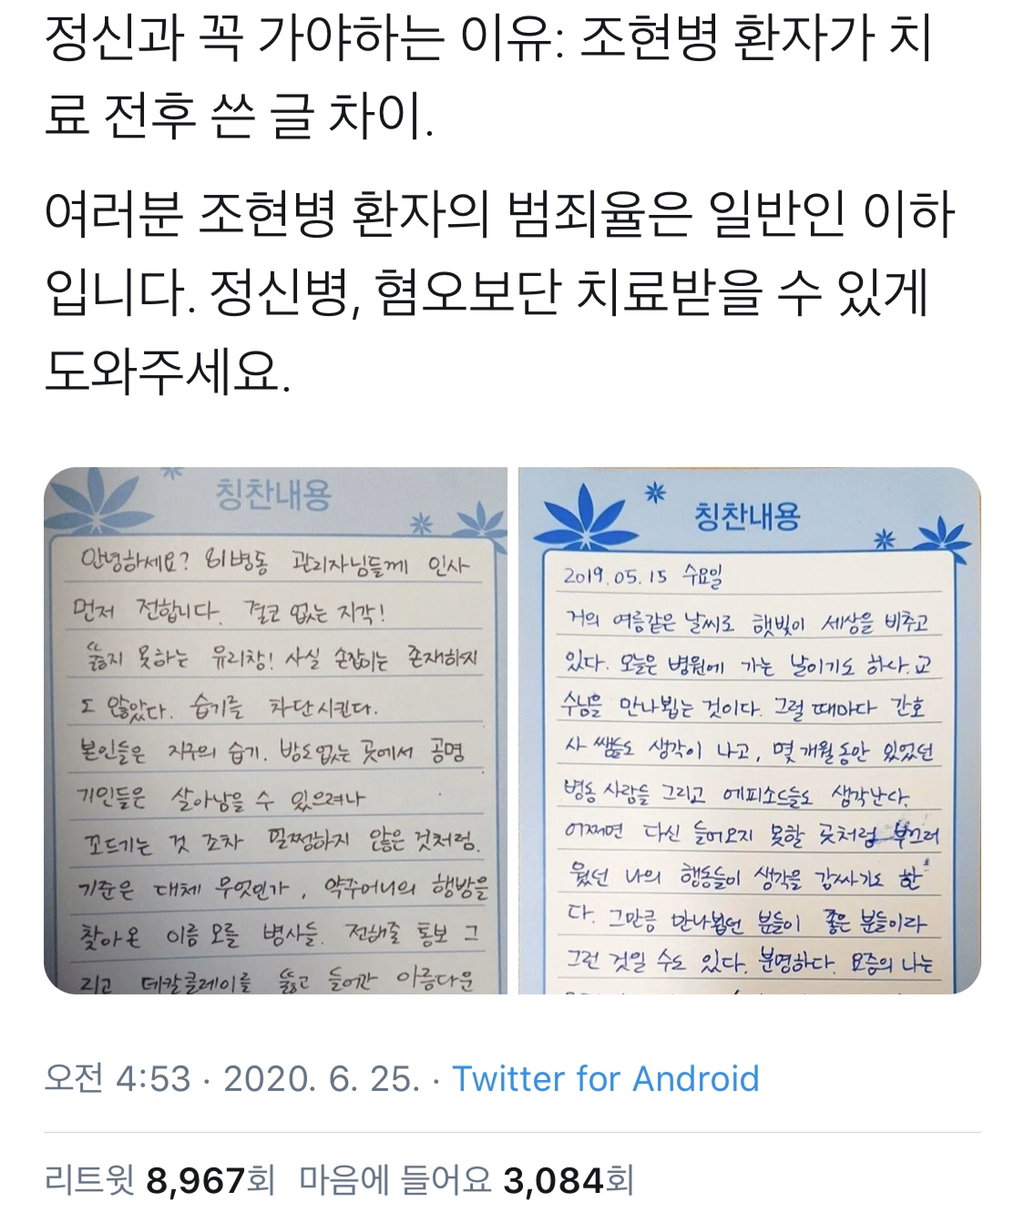 정신과 꼭 가야하는 이유: 조현병 환자가 치
료 전후 쓴 글 차이.
여러분 조현병 환자의 범죄율은 일반인 이하
입니다. 정신병, 혐오보단 치료받을 수 있게
도와주세요.
칭찬내용
안녕하세요? 81병동 관리자님들께 인사
먼저 전합니다. 결코 없는 지각!
뚫지 못하는 유리창! 사실 손잡이는 존재하지
도 않았다. 습기를 차단시킨다.
본인들은 지구의 습기. 밤도없는 곳에서 공명
기인들은 살아남을 수 있으려나
꼬드기는 것 조차 멀쩡하지 않은 것처럼.
기준은 대체 무엇인가, 약주머니의 행방을
찾아온 이름 모를 병사들. 전해줄 통보 그
리고 데칼클레이를 뚫고 들어간 아름다운
칭찬내용
2019.05.15 수요일
거의 여름같은 날씨로 햇빛이 세상을 비추고
있다. 오늘은 병원에 가는 날이기도 하다. 교
수님을 만나뵙는 것이다. 그럴 때마다 간호
사 쌤들도 생각이 나고, 몇 개월동안 있었던
병동 사람들 그리고 에피소드들도 생각난다.
어쩌면 다신 들어오지 못할 곳처럼 부끄러
웠던 나의 행동들이 생각을 감싸기도 한
다. 그만큼 만나뵙던 분들이 좋은 분들이라
그런 것일 수도 있다. 분명하다. 요즘의 나는
오전 4:53 · 2020. 6. 25. · Twitter for Android
리트윗 8,967회 마음에 들어요 3,084회